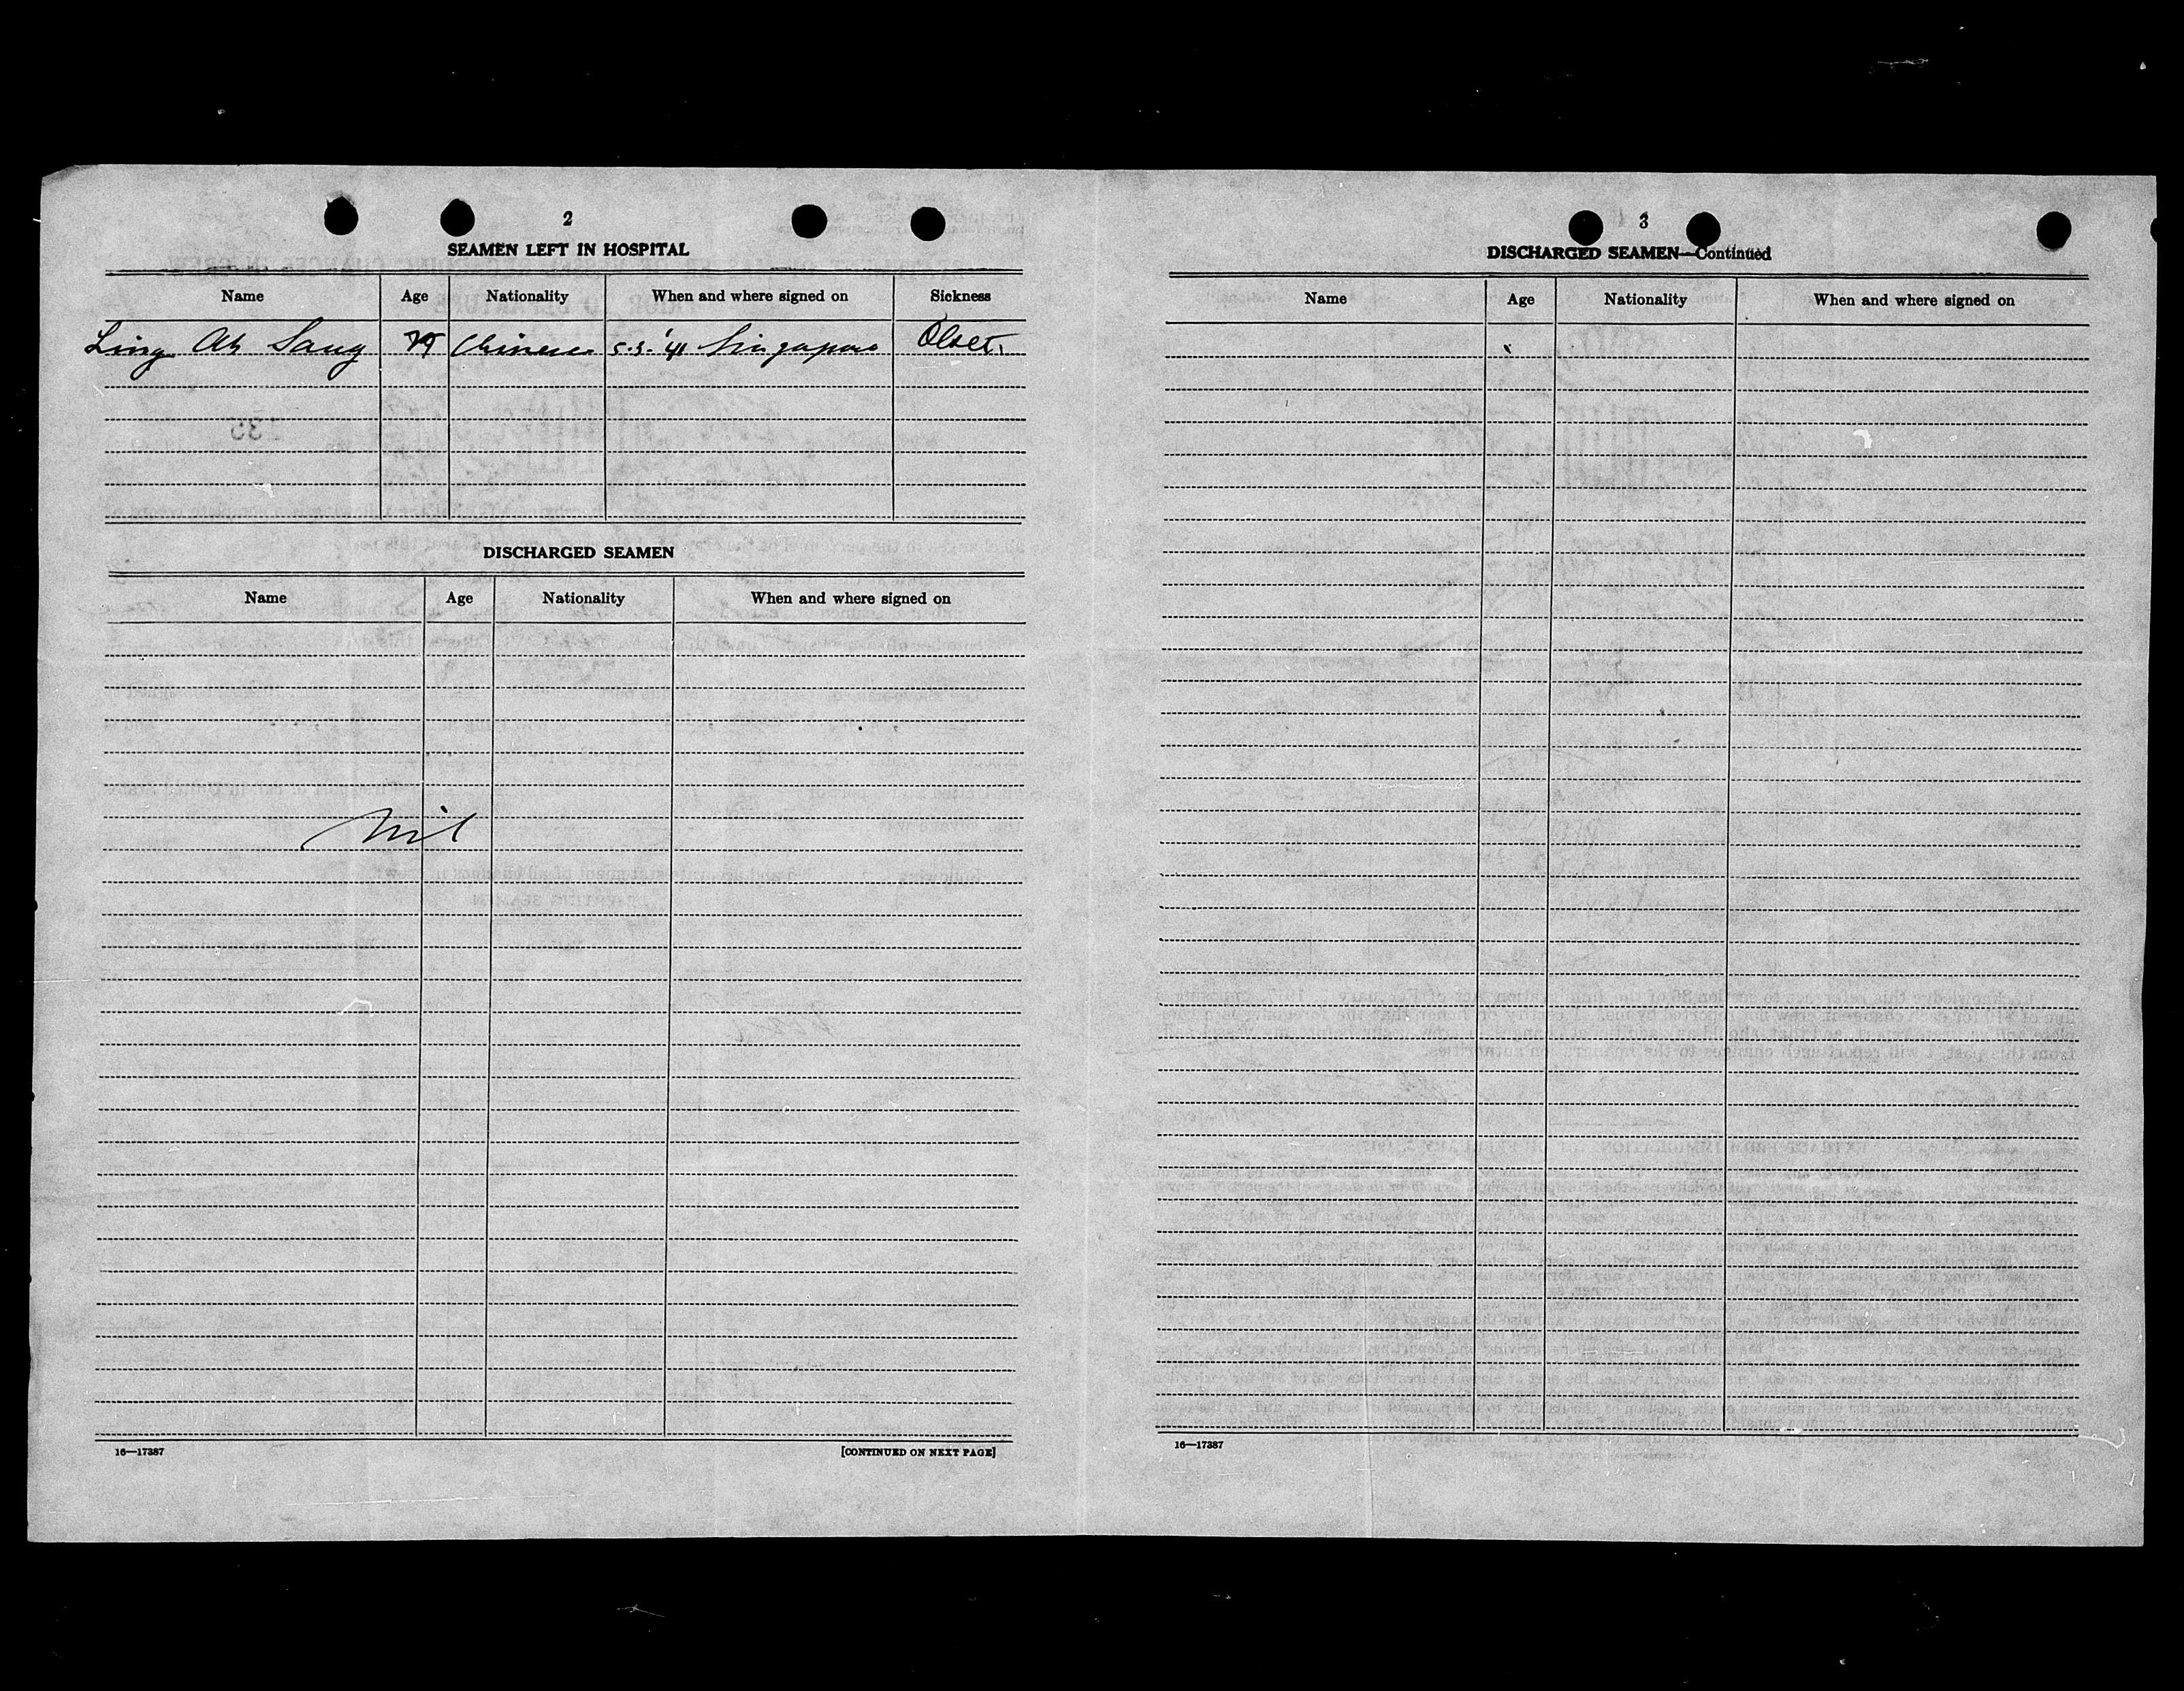 2
SEAMEN LEFT IN HOSPITAL
Name Age Nationality When and where signed on Sickness
Ling Ah Sang Chinese 5.3.'41 Singapore
DISCHARGED SEAMEN
Name Age Nationality When and where signed on
Nil
16—17387 [CONTINUED ON NEXT PAGE]
3
DISCHARGED SEAMEN—Continued
Name Age Nationality When and where signed on
16—17387